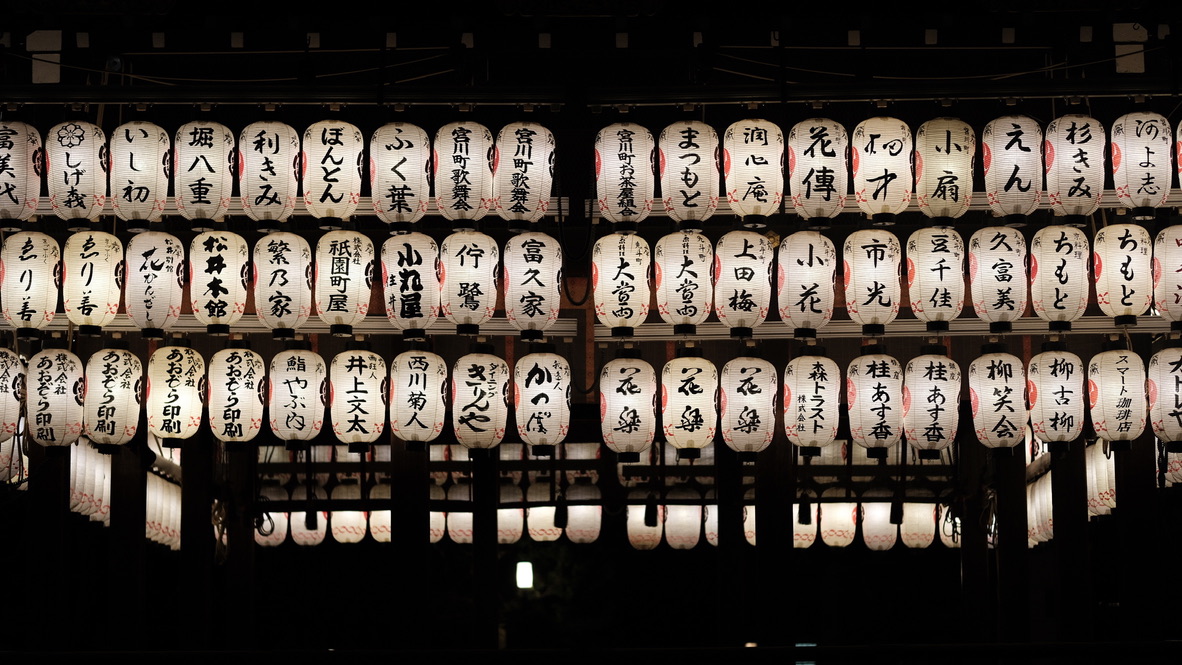 富美代
しげ森
いし初
堀八重
利きみ
ほんとん
ふく葉
宮川町歌舞会
宮川町歌舞会
宮川町お茶屋組合
まつもと
潤心庵
花傳
小扇
えん
杉きみ
河よ志
ゑり善
ゑり善
花かんざし
松井本館
繁乃家
祇園町屋
小丸屋
住井
佇鷺
富久家
大當両
大當両
上田梅
小花
市光
豆千佳
久富美
ちもと
ちもと
株式会社
あおぞら印刷
株式会社
あおぞら印刷
株式会社
あおぞら印刷
株式会社
あおぞら印刷
鮨やぶ内
井上文太
西川菊人
ダイニング
きりんや
かつぱ
花樂
花樂
花樂
森トラスト
株式会社
桂あす香
桂あす香
柳笑会
柳古柳
スマート珈琲店